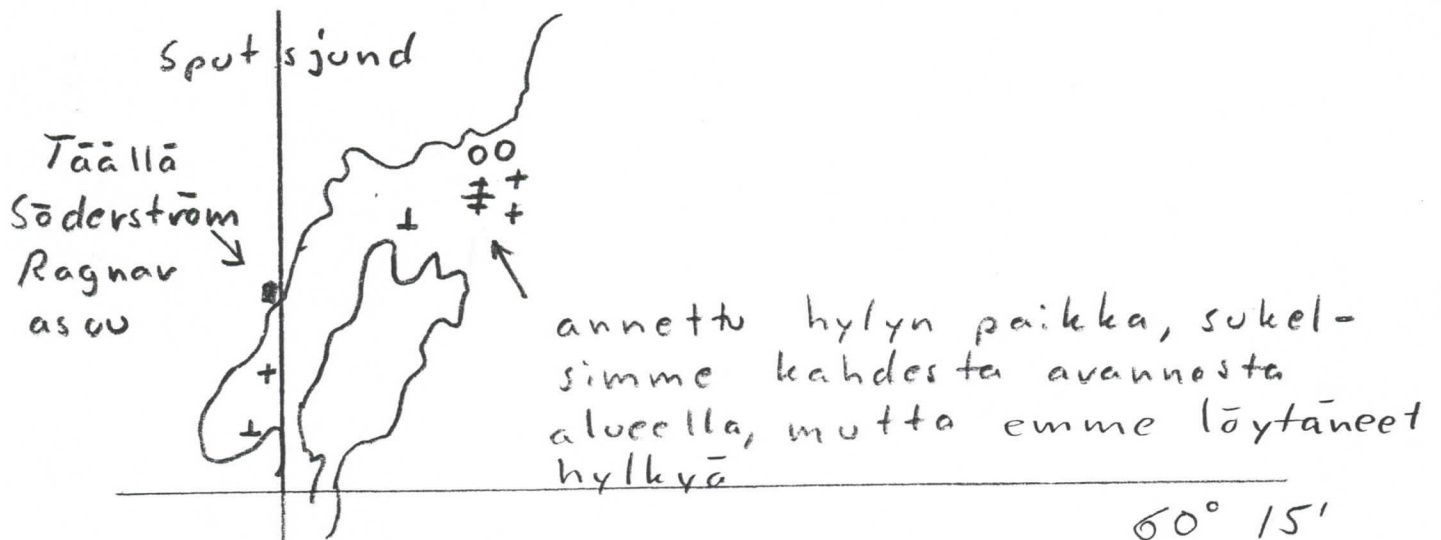 Sputsjund
Täällä
Söderström
Ragnar
asuu
annettu hylyn paikka, sukel-
simme kahdesta avannosta
alueella, mutta emme löytäneet
hylkyä
60° 15'